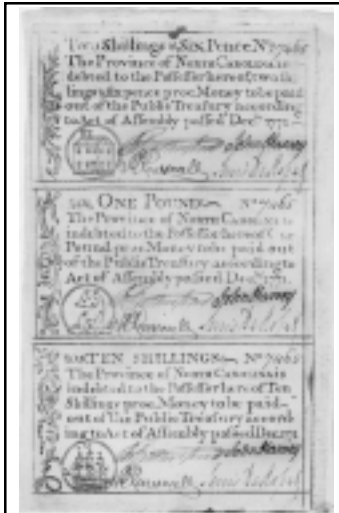 Two Shillings & Six Pence No 7465
The Province of NORTH CAROLINA is
indebted to the Possessor hereof two shil
lings & six pence proc. Money to be paid
out of the Public Treasury according
to Act of Assembly passed Decr. 1771
John Harvey
ONE POUND No 7465
The Province of NORTH CAROLINA is
indebted to the Possessor hereof One
Pound proc. Money to be paid out
of the Public Treasury according to
Act of Assembly passed Decr. 1771.
John Harvey
TEN SHILLINGS No 7465
The Province of NORTH CAROLINA is
indebted to the Possessor hereof Ten
Shillings proc. Money to be paid
out of the Public Treasury accord
ing to Act of Assembly passed Decr. 1771
John Harvey